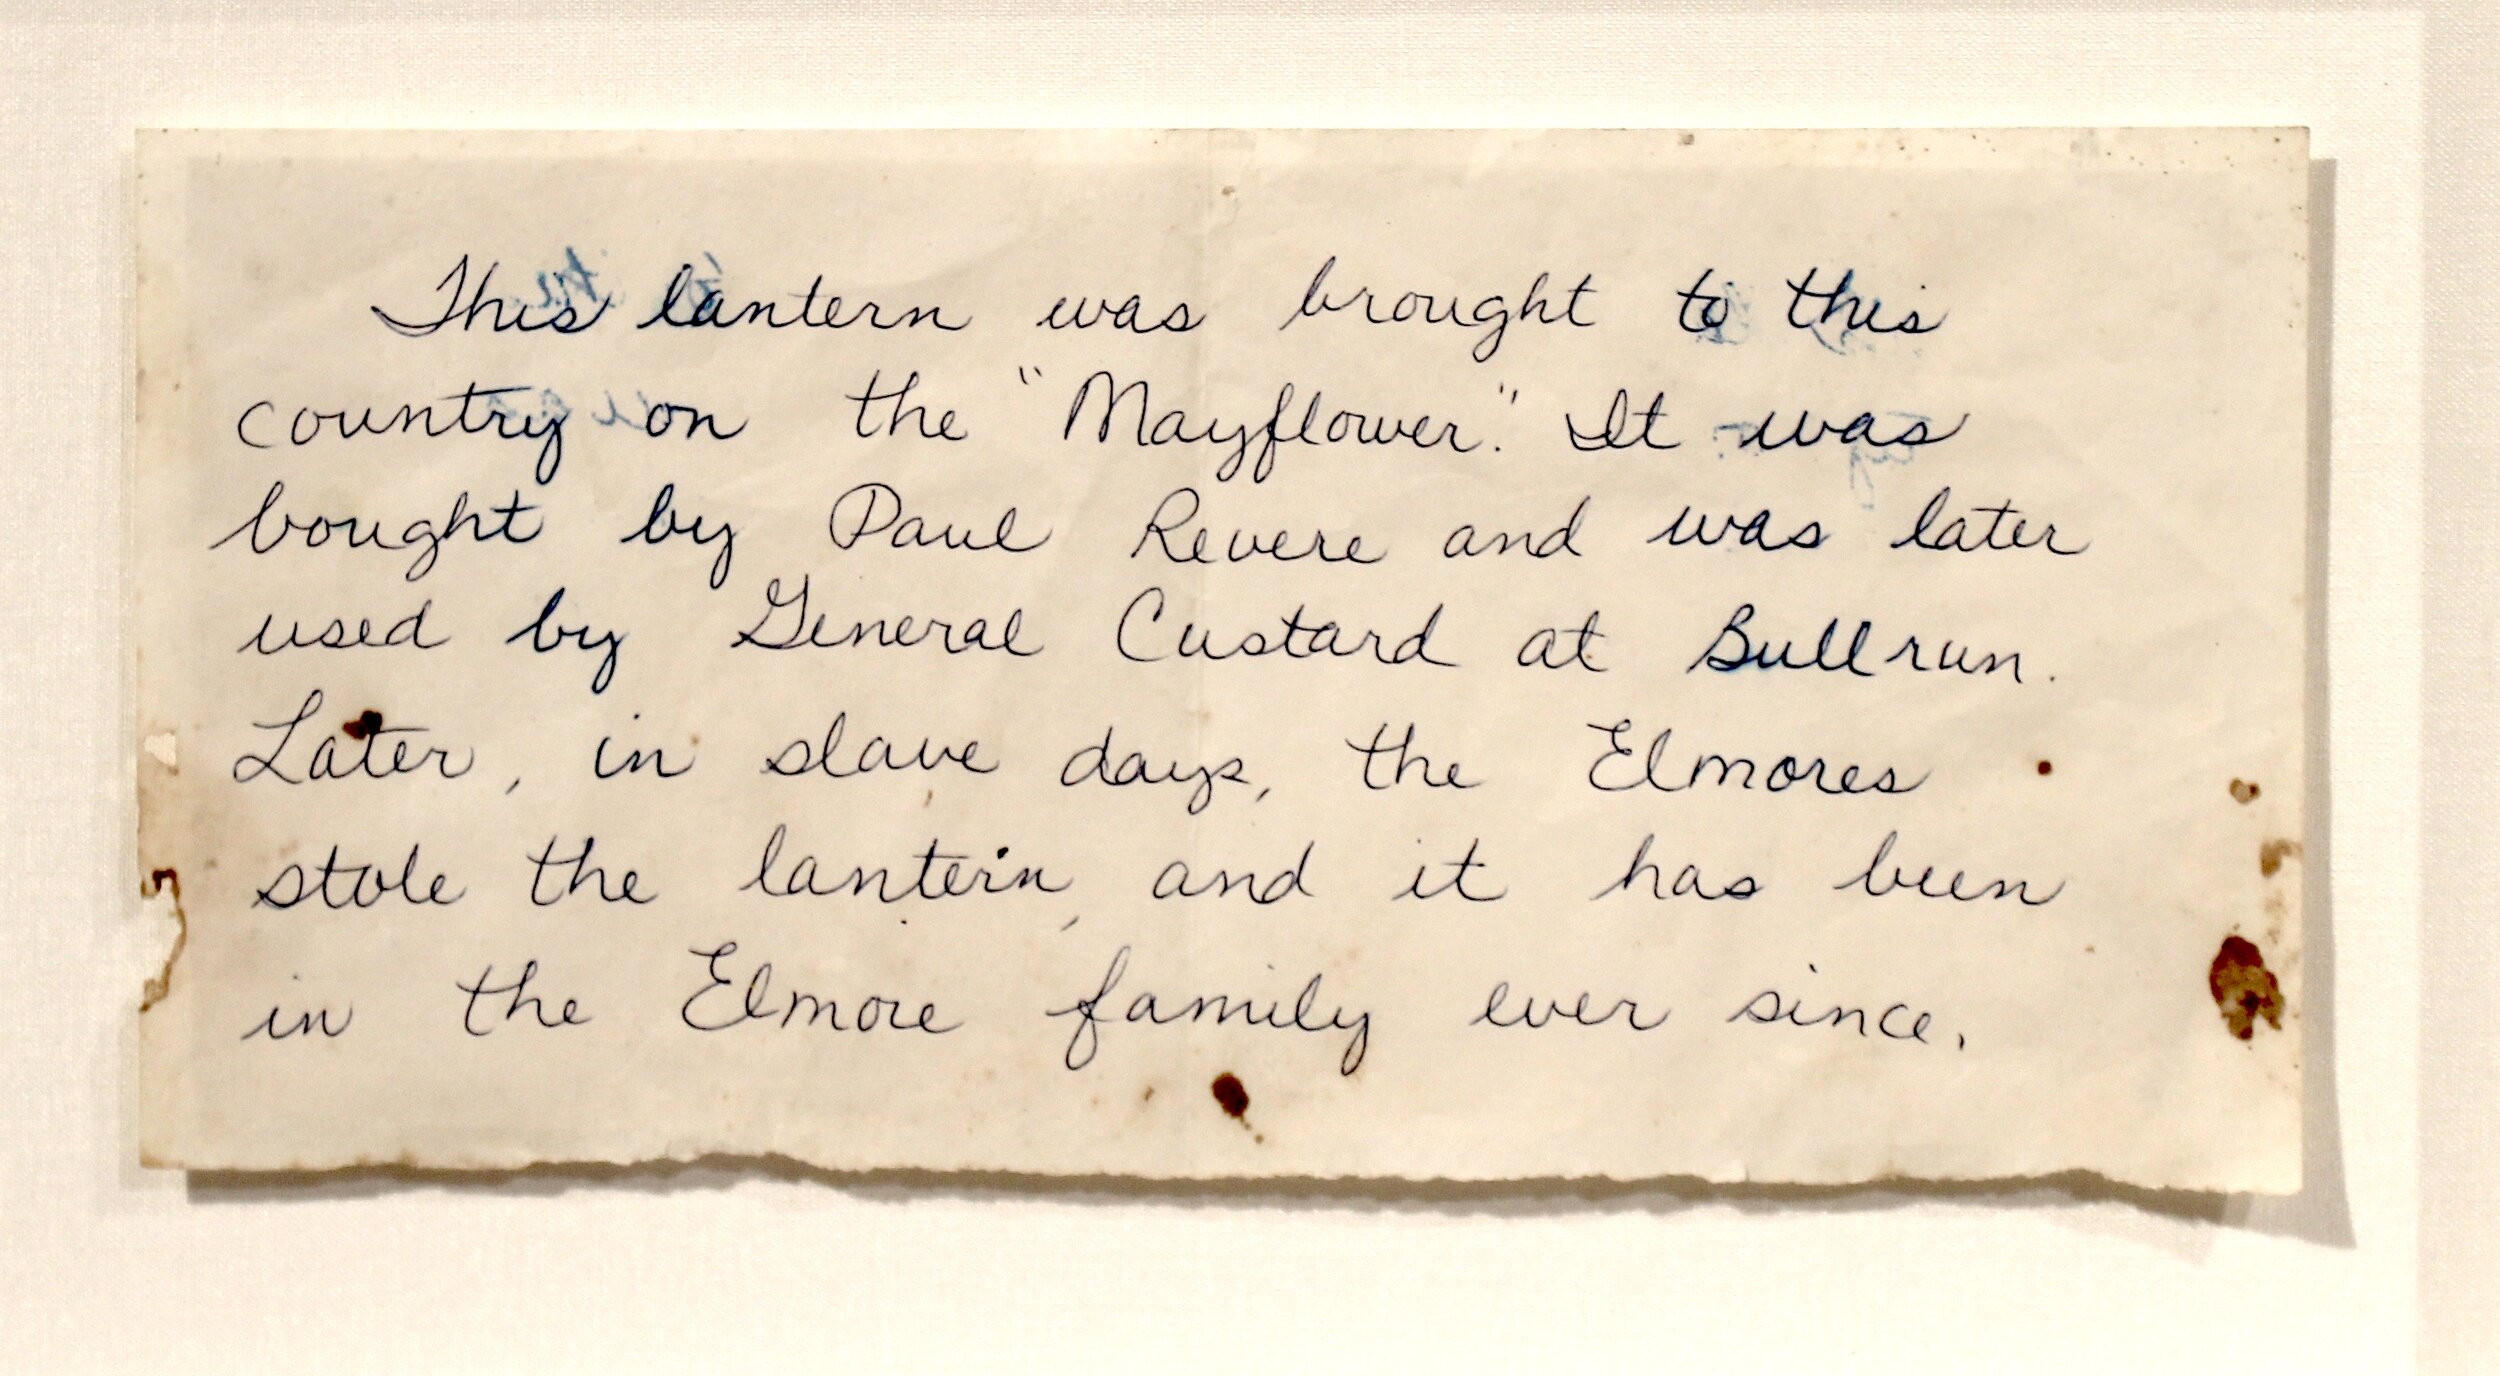 This lantern was brought to this
country on the "Mayflower." It was
bought by Paul Revere and was later
used by General Custard at Bullrun.
Later, in slave days, the Elmores
stole the lantern, and it has been
in the Elmore family ever since.